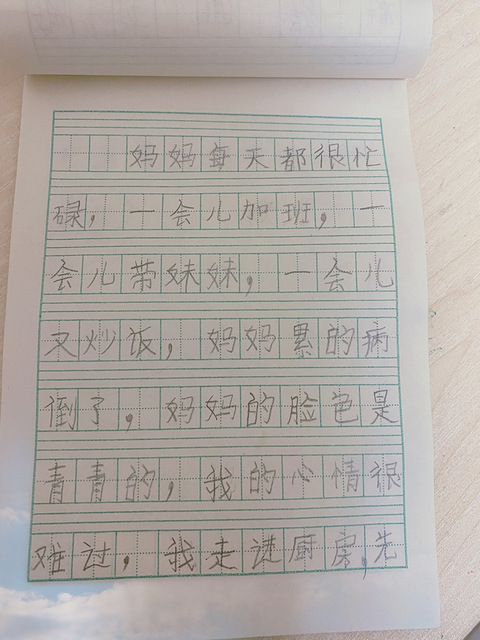 妈妈每天都很忙
碌，一会儿加班，一
会儿带妹妹，一会儿
又炒饭，妈妈累的病
倒了，妈妈的脸色是
青青的，我的心情很
难过，我走进厨房，先